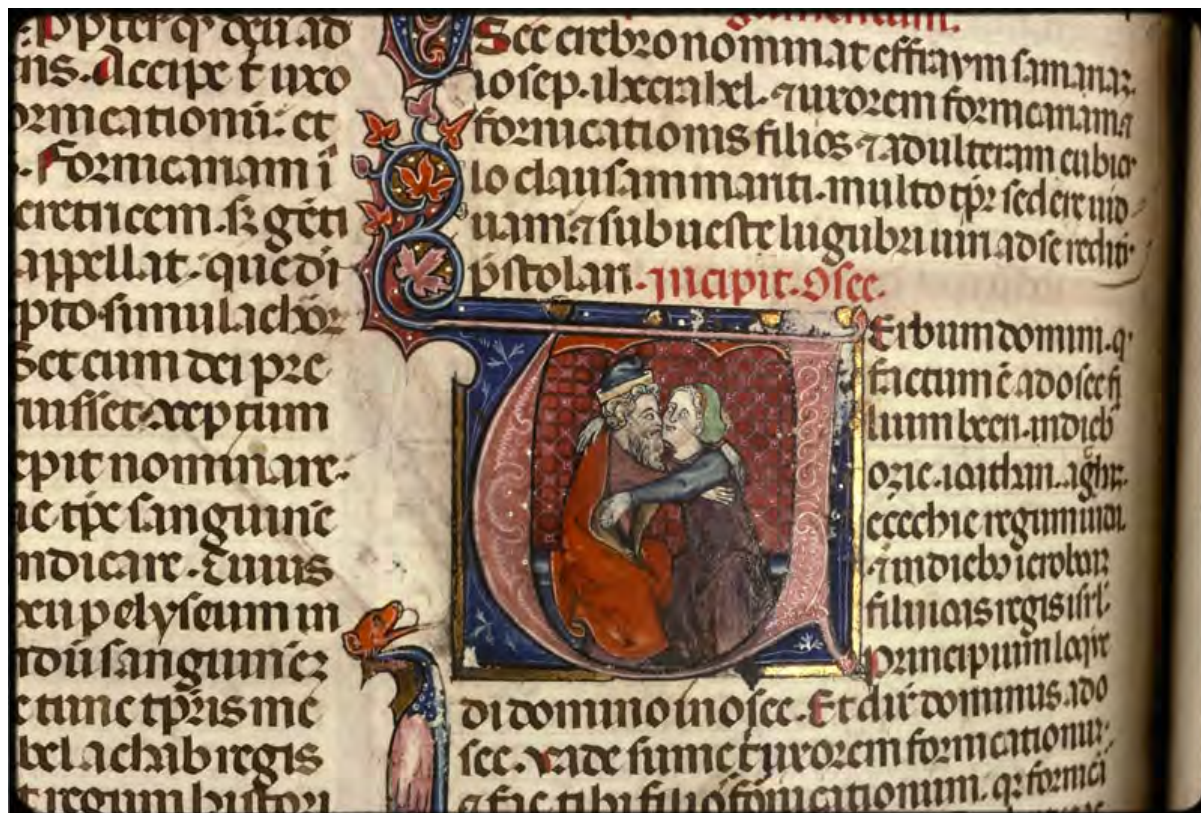 ppter q deū ad
tis. Accipe t uxo
ornicationū. et
. Fornicariam i
eretricem. sʒ gēti
appellat. que di
pto simulachor
Set cum dei pre
uisset. preceptum
epit nominare.
tpe sanguinē
indicare.
p elyseum in
sanguinez
e tunc tpris me
bel achab regis
t regum histori
gumentum.
See crebro nominat effraym samariaʒ
iosep. ⁊ uxorem fornicariam ⁊
fornicationis filios ⁊ adulteram cubicu
lo clausam mariti. multo tpr sedere uid
uam. ⁊ sub ueste lugubri uiri ad se rediti
pstolari. Incipit. Osee.
Uerbum domini. q
factum ē ad osee fi
lium beeri. in dieb
ozie. ioathan. achaz.
ezechie regum iuda.
⁊ in dieb ieroboaz
filii ioas regis isrl.
principium loque
di domino in osee. Et dix dominus ad o
see. Vade sume t uxorem fornicationū.
⁊ fac tibi filios fornicationum. qr fornicā